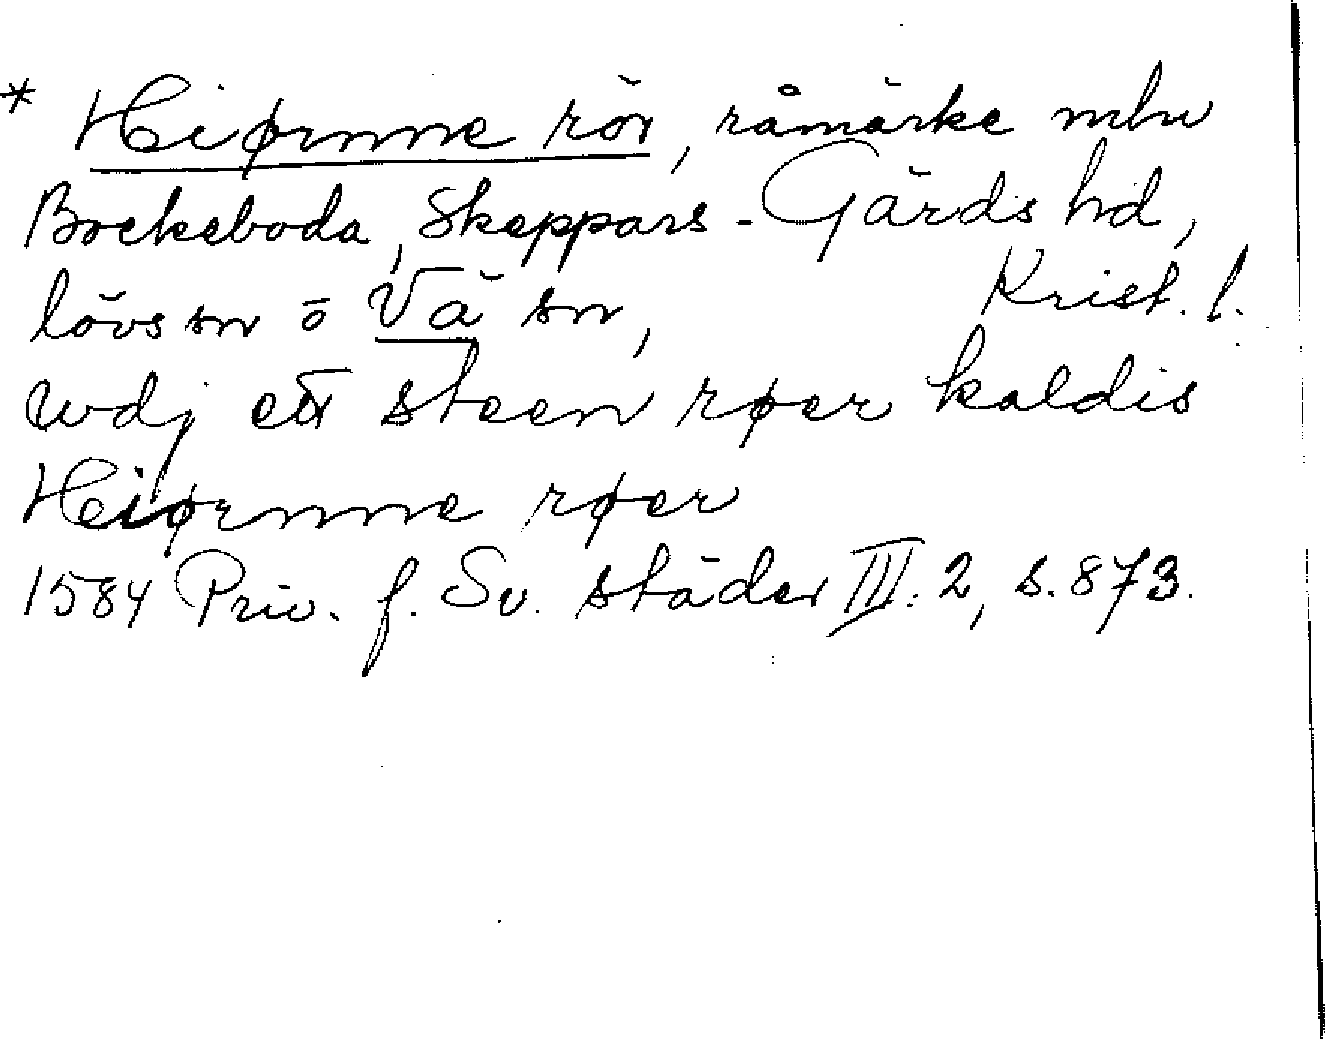 * Hiørnne rör, råmärke mlw
Bockeboda, Skeppars- Gärds hd,
lövs sn o Vä sn, Krist. l.
wdj ett steen røer kaldis
Hiørnne røer
1584 Priv. f. Sv. städer III:2, s. 873.